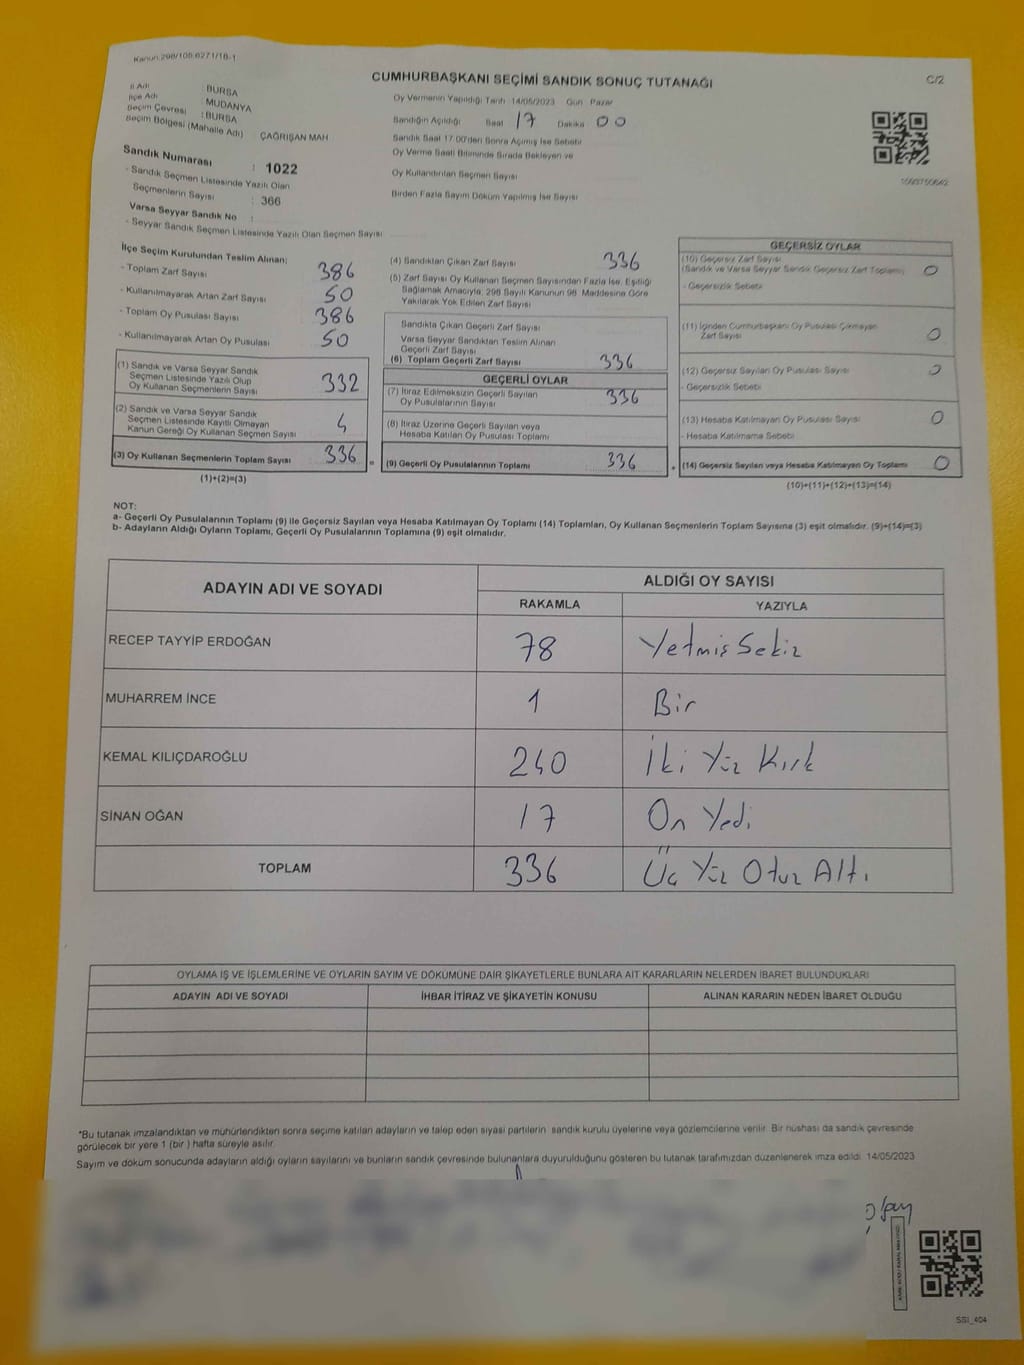 Kanun:298/105,6271/16-1
CUMHURBAŞKANI SEÇİMİ SANDIK SONUÇ TUTANAĞI
C/2
İl Adı : BURSA
İlçe Adı : MUDANYA
Seçim Çevresi : BURSA
Seçim Bölgesi (Mahalle Adı) : ÇAĞRIŞAN MAH
Sandık Numarası : 1022
- Sandık Seçmen Listesinde Yazılı Olan
Seçmenlerin Sayısı : 366
Varsa Seyyar Sandık No :
- Seyyar Sandık Seçmen Listesinde Yazılı Olan Seçmen Sayısı
Oy Vermenin Yapıldığı Tarih 14/05/2023 Gün Pazar
Sandığın Açıldığı Saat 17 Dakika 00
Sandık Saat 17:00'den Sonra Açılmış İse Sebebi
Oy Verme Saati Bitiminde Sırada Bekleyen ve
Oy Kullandırılan Seçmen Sayısı
Birden Fazla Sayım Döküm Yapılmış İse Sayısı
İlçe Seçim Kurulundan Teslim Alınan;
- Toplam Zarf Sayısı 386
- Kullanılmayarak Artan Zarf Sayısı 50
- Toplam Oy Pusulası Sayısı 386
- Kullanılmayarak Artan Oy Pusulası 50
(1) Sandık ve Varsa Seyyar Sandık
Seçmen Listesinde Yazılı Olup
Oy Kullanan Seçmenlerin Sayısı 332
(2) Sandık ve Varsa Seyyar Sandık
Seçmen Listesinde Kayıtlı Olmayan
Kanun Gereği Oy Kullanan Seçmen Sayısı 4
(3) Oy Kullanan Seçmenlerin Toplam Sayısı 336
(1)+(2)=(3)
(4) Sandıktan Çıkan Zarf Sayısı 336
(5) Zarf Sayısı Oy Kullanan Seçmen Sayısından Fazla İse, Eşitliği
Sağlamak Amacıyla, 298 Sayılı Kanunun 98. Maddesine Göre
Yakılarak Yok Edilen Zarf Sayısı
Sandıkta Çıkan Geçerli Zarf Sayısı
Varsa Seyyar Sandıktan Teslim Alınan
Geçerli Zarf Sayısı
(6) Toplam Geçerli Zarf Sayısı 336
GEÇERLİ OYLAR
(7) İtiraz Edilmeksizin Geçerli Sayılan
Oy Pusulalarının Sayısı 336
(8) İtiraz Üzerine Geçerli Sayılan veya
Hesaba Katılan Oy Pusulası Toplamı
= (9) Geçerli Oy Pusulalarının Toplamı 336
GEÇERSİZ OYLAR
(10) Geçersiz Zarf Sayısı
(Sandık ve Varsa Seyyar Sandık Geçersiz Zarf Toplamı) 0
- Geçersizlik Sebebi
(11) İçinden Cumhurbaşkanı Oy Pusulası Çıkmayan
Zarf Sayısı 0
(12) Geçersiz Sayılan Oy Pusulası Sayısı 0
- Geçersizlik Sebebi
(13) Hesaba Katılmayan Oy Pusulası Sayısı 0
- Hesaba Katılmama Sebebi
+ (14) Geçersiz Sayılan veya Hesaba Katılmayan Oy Toplamı 0
(10)+(11)+(12)+(13)=(14)
NOT:
a- Geçerli Oy Pusulalarının Toplamı (9) ile Geçersiz Sayılan veya Hesaba Katılmayan Oy Toplamı (14) Toplamları, Oy Kullanan Seçmenlerin Toplam Sayısına (3) eşit olmalıdır. (9)+(14)=(3)
b- Adayların Aldığı Oyların Toplamı, Geçerli Oy Pusulalarının Toplamına (9) eşit olmalıdır.
ADAYIN ADI VE SOYADI ALDIĞI OY SAYISI
RAKAMLA YAZIYLA
RECEP TAYYİP ERDOĞAN 78 Yetmiş Sekiz
MUHARREM İNCE 1 Bir
KEMAL KILIÇDAROĞLU 240 İki Yüz Kırk
SİNAN OĞAN 17 On Yedi
TOPLAM 336 Üç Yüz Otuz Altı
OYLAMA İŞ VE İŞLEMLERİNE VE OYLARIN SAYIM VE DÖKÜMÜNE DAİR ŞİKAYETLERLE BUNLARA AİT KARARLARIN NELERDEN İBARET BULUNDUKLARI
ADAYIN ADI VE SOYADI İHBAR İTİRAZ VE ŞİKAYETİN KONUSU ALINAN KARARIN NEDEN İBARET OLDUĞU
*Bu tutanak imzalandıktan ve mühürlendikten sonra seçime katılan adayların ve talep eden siyasi partilerin sandık kurulu üyelerine veya gözlemcilerine verilir. Bir nüshası da sandık çevresinde
görülecek bir yere 1 (bir ) hafta süreyle asılır.
Sayım ve döküm sonucunda adayların aldığı oyların sayılarını ve bunların sandık çevresinde bulunanlara duyurulduğunu gösteren bu tutanak tarafımızdan düzenlenerek imza edildi. 14/05/2023
SSI_404